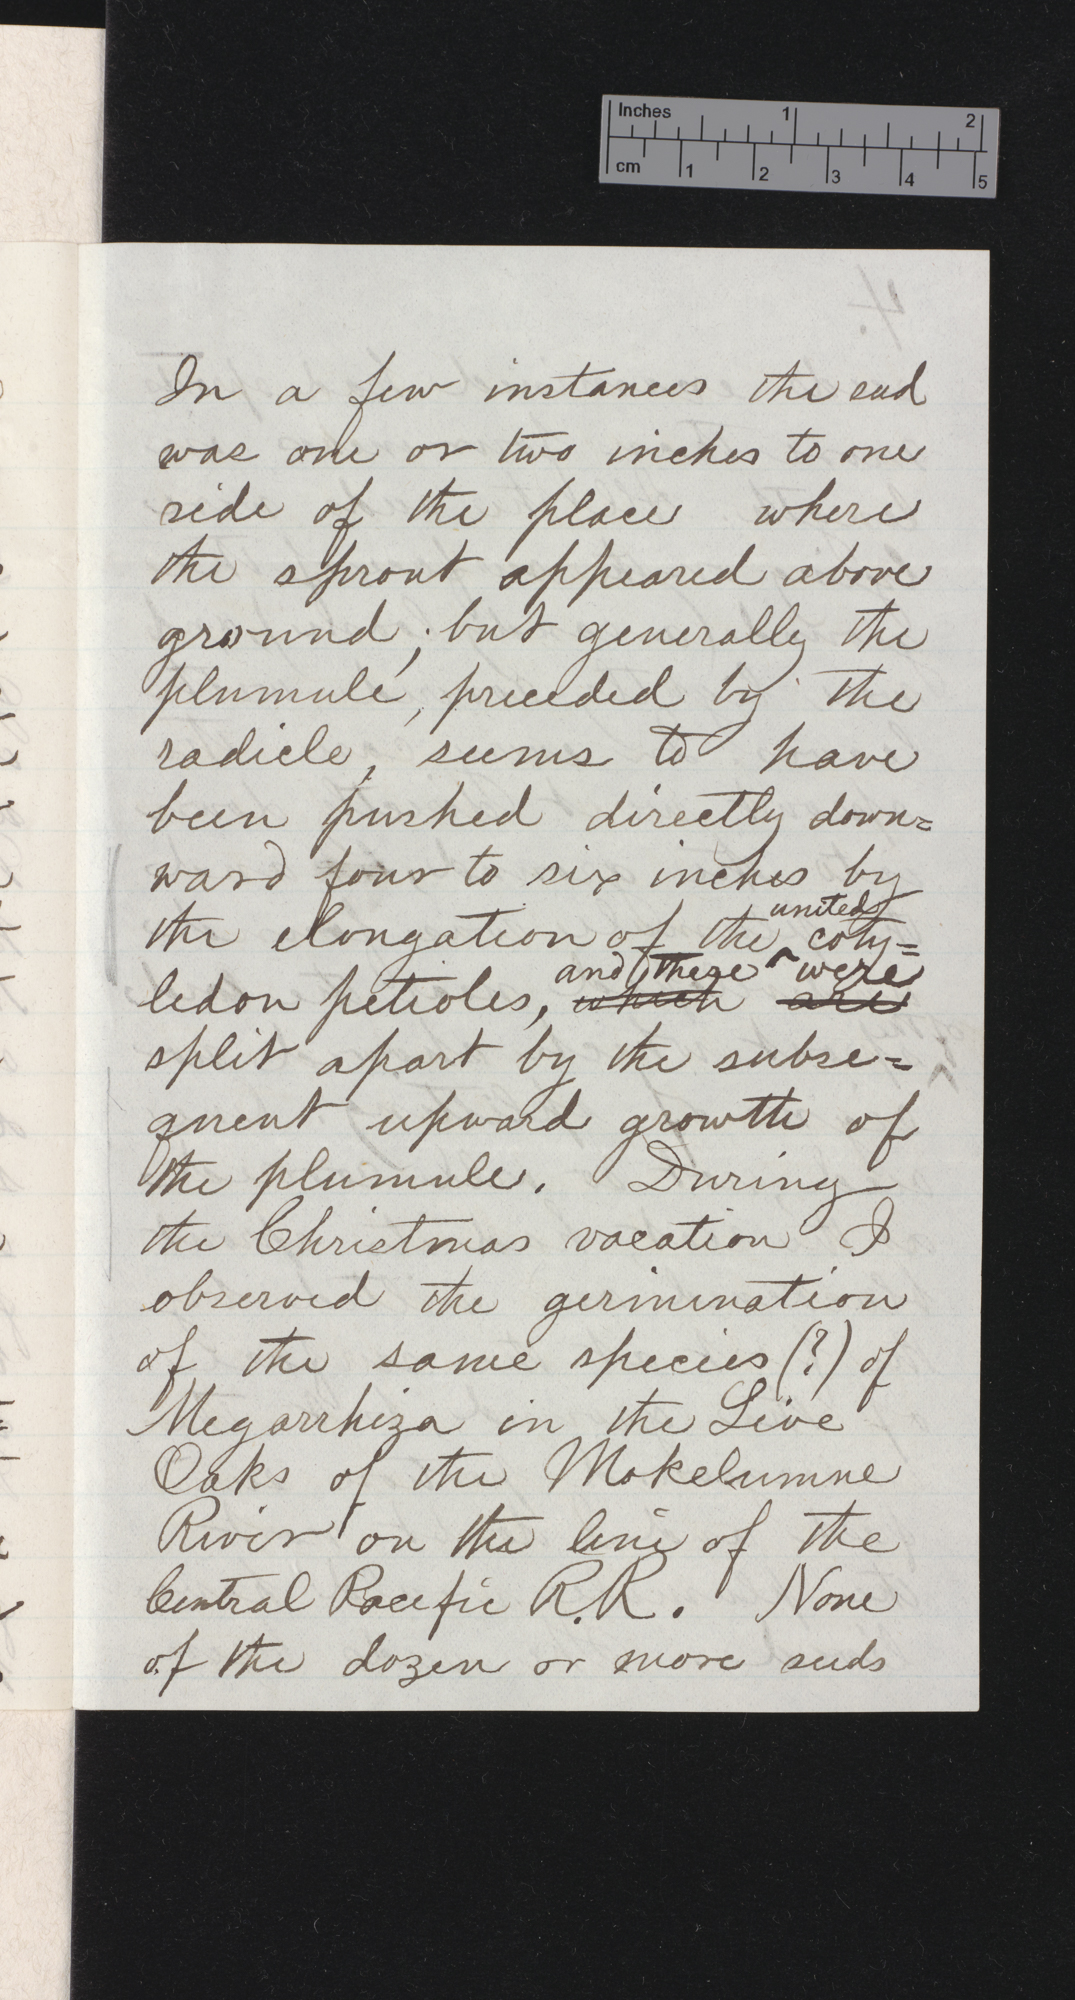 Inches 1 2
cm 1 2 3 4 5
In a few instances the seed
was one or two inches to one
side of the place where
the sprout appeared above
ground; but generally the
plumule, preceded by the
radicle, seems to have
been pushed directly down=
ward four to six inches by
the elongation of the ^united coty=
ledon petioles, and these were ~~which are~~
split apart by the subse=
quent upward growth of
the plumule. During
the Christmas vacation I
observed the germination
of the same species (?) of
Megarrhiza in the Live
Oaks of the Mokelumne
River on the line of the
Central Pacific R.R. None
of the dozen or more seeds